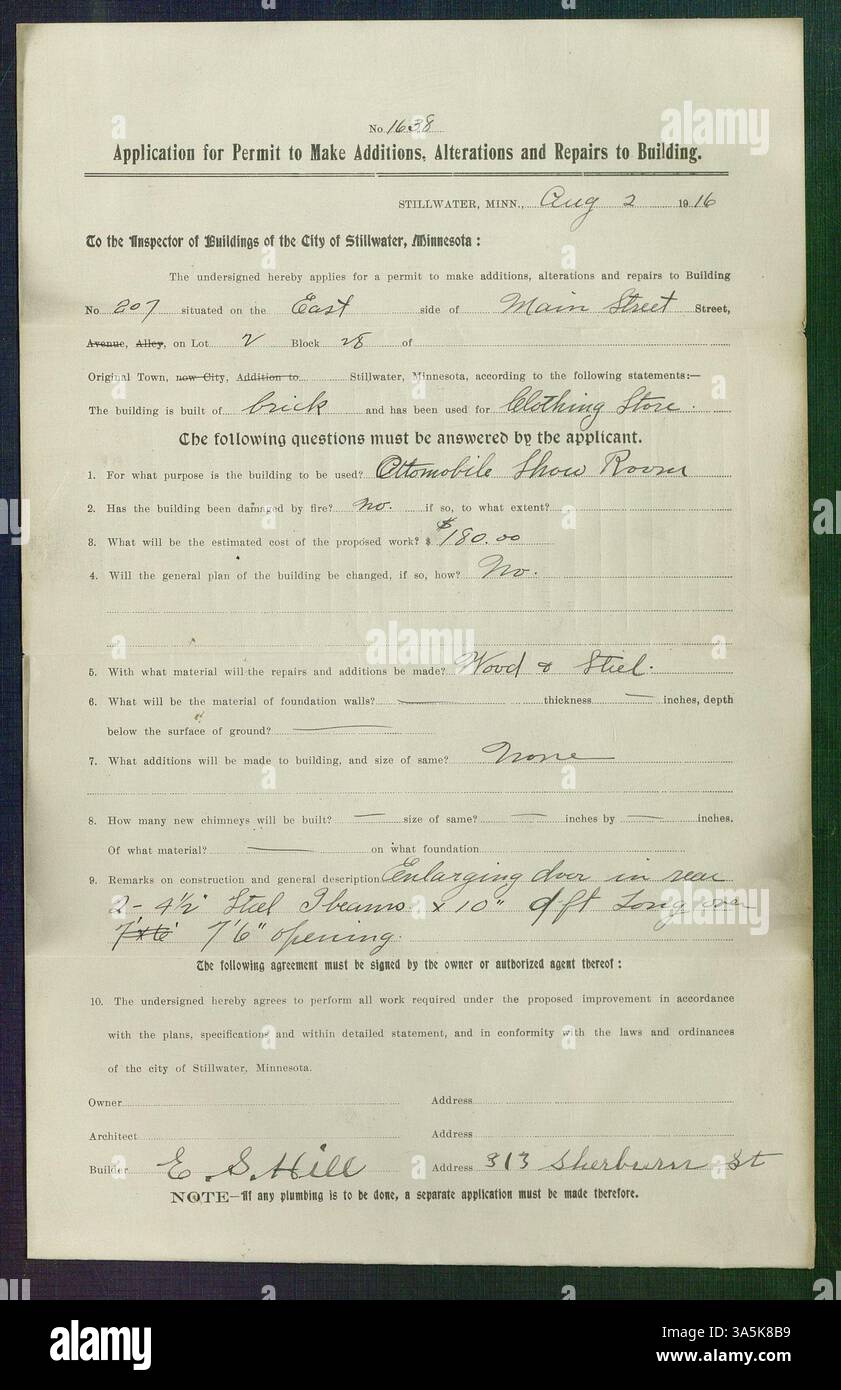 No. 1638
Application for Permit to Make Additions, Alterations and Repairs to Building.
STILLWATER, MINN., Aug 2 1916
To the Inspector of Buildings of the City of Stillwater, Minnesota:
The undersigned hereby applies for a permit to make additions, alterations and repairs to Building
No 207 situated on the East side of Main Street Street,
Avenue, Alley, on Lot 2 Block 28 of
Original Town, now City, Addition to Stillwater, Minnesota, according to the following statements:—
The building is built of brick and has been used for Clothing Store.
The following questions must be answered by the applicant.
1. For what purpose is the building to be used? Ottomobile Show Room
2. Has the building been damaged by fire? no. if so, to what extent?
3. What will be the estimated cost of the proposed work? $ $180.00
4. Will the general plan of the building be changed, if so, how? No.
5. With what material will the repairs and additions be made? Wood & Stiel.
6. What will be the material of foundation walls? — thickness — inches, depth
below the surface of ground? —
7. What additions will be made to building, and size of same? None
8. How many new chimneys will be built? — size of same? — inches by — inches.
Of what material? — on what foundation
9. Remarks on construction and general description Enlarging door in rear
2 - 4½" Stiel I beams x 10" 9 ft Long over
7'x6' 7'6" opening.
The following agreement must be signed by the owner or authorized agent thereof:
10. The undersigned hereby agrees to perform all work required under the proposed improvement in accordance
with the plans, specifications and within detailed statement, and in conformity with the laws and ordinances
of the city of Stillwater, Minnesota.
Owner Address
Architect Address
Builder E. S. Hill Address 313 Sherburn St
NOTE—If any plumbing is to be done, a separate application must be made therefore.
alamy
alamy
alamy
alamy
Image ID: 3A5K8B9
www.alamy.com